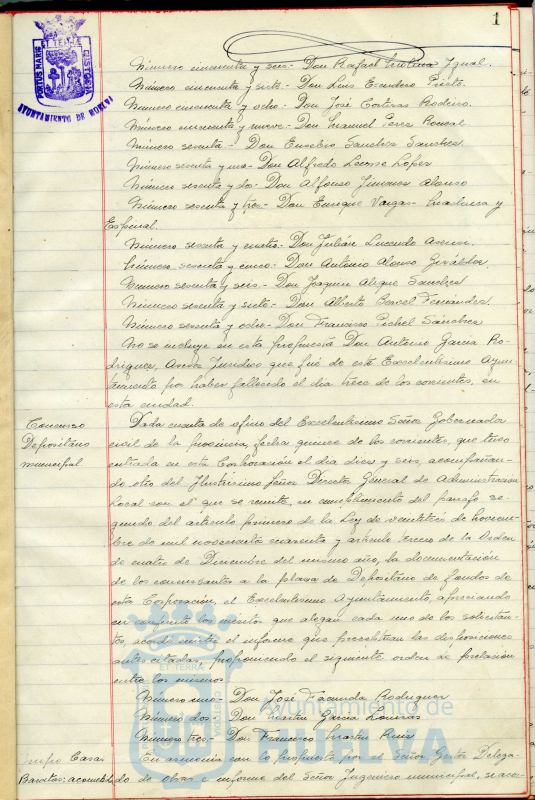 1
PORTUS MARIS ET TERRE CUSTODIA
AYUNTAMIENTO DE HUELVA
Número cincuenta y seis.- Don Rafael Igual.
Número cincuenta y siete.- Don Luis Escudero Prieto.
Número cincuenta y ocho.- Don José Contioso Rodeiro.
Número cincuenta y nueve.- Don Manuel Perez
Número sesenta.- Don Eusebio Sanchez Sanchez
Número sesenta y uno- Don Alfredo Lopez
Número sesenta y dos- Don Alfonso Jimenez Alonso
Número sesenta y tres- Don Enrique Vargas- y
Espinal.
Número sesenta y cuatro- Don Julián Lucendo Asensi.
Número sesenta y cinco.- Don Antonio Alonso Giráldez.
Número sesenta y seis- Don Joaquin Sanchez
Número sesenta y siete- Don Alberto Fernandez.
Número sesenta y ocho- Don Francisco Pichel Sánchez
No se incluye en esta propuesta Don Antonio Garcia Ro-
driguez, Asesor Juridico que fué de este Excelentísimo Ayun-
tamiento por haber fallecido el dia trece de los corrientes, en
esta ciudad.
Concurso
Depositario
municipal
Dada cuenta de oficio del Excelentísimo Señor Gobernador
civil de la provincia, fecha quince de los corrientes, que tuvo
entrada en esta Corporación el dia diez y seis, acompañan-
do otro del Ilustrísimo Señor Director General de Administracion
Local con el que se remite, en cumplimiento del párrafo se-
gundo del artículo primero de la Ley de veintitres de Noviem-
bre de mil novecientos cuarenta y artículo tercero de la Orden
de cuatro de Diciembre del mismo año, la documentación
de los concursantes a la plaza de Depositario de fondos de
esta Corporación, el Excelentísimo Ayuntamiento, apreciando
en conjunto los méritos que alegan cada uno de los solicitan-
tes, acordó emitir el informe que preceptúan las disposiciones
antes citadas, proponiendo el siguiente orden de prelación
entre los mismos
Número uno- Don José Facunda Rodriguez
Número dos- Don Martin Garcia
Número tres- Don Francisco Martin Ruiz
Grupo Casas
Baratas; acometida
En armonía con lo propuesto por el Señor Gestor Delega-
do de obras e informe del Señor Ingeniero municipal, se acor-
Ayuntamiento de
HUELVA